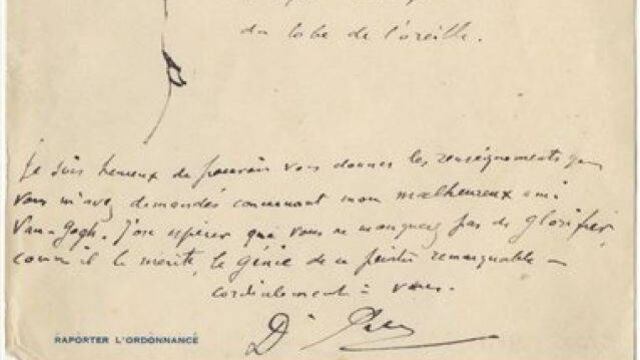 du lobe de l'oreille.
Je suis heureux de pouvoir vous donner les renseignements que
vous m'avez demandés concernant mon malheureux ami
Van-Gogh. J'ose espérer que vous ne manquerez pas de glorifier,
comme il le mérite, le génie de ce peintre remarquable –
cordialement à vous.
Dr Rey
RAPORTER L'ORDONNANCE